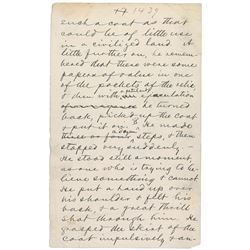 1439
such a coat as that
could be of little use
in a civilized land. A
little further on, he remem-
bered that there were some
papers of value in one
of the pockets of the relic
& then with
he turned
back, picked up the coat
& put it on. He made
three or four steps, & then
stopped very suddenly
He stood still a moment
as one who is trying to be
lieve something & cannot
He put a hand up over
his shoulder & felt his
back, & a great thrill
shot through him. He
grasped the skirt of the
coat impulsively & an-